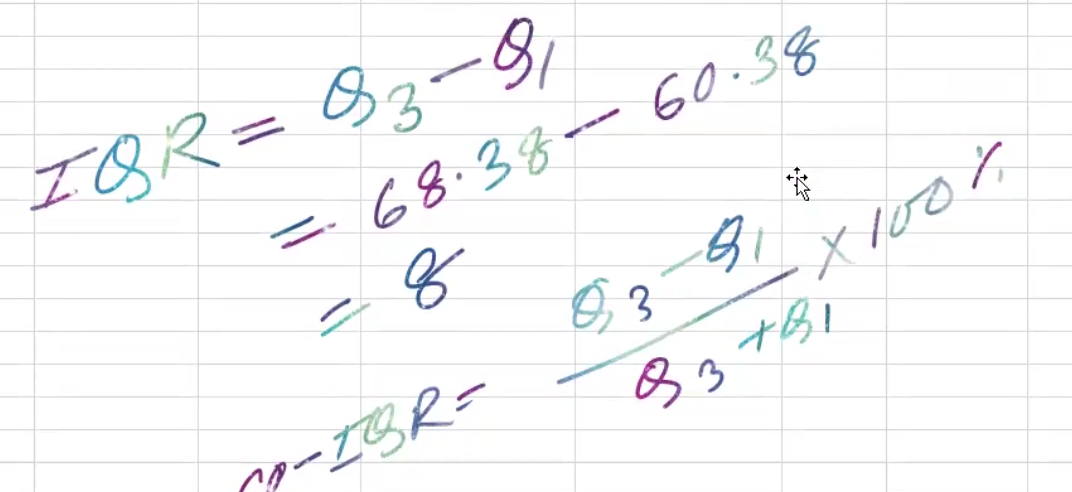 IQR = Q3 - Q1
= 68.38 - 60.38
= 8
IQR = Q3 - Q1 / Q3 + Q1 × 100%